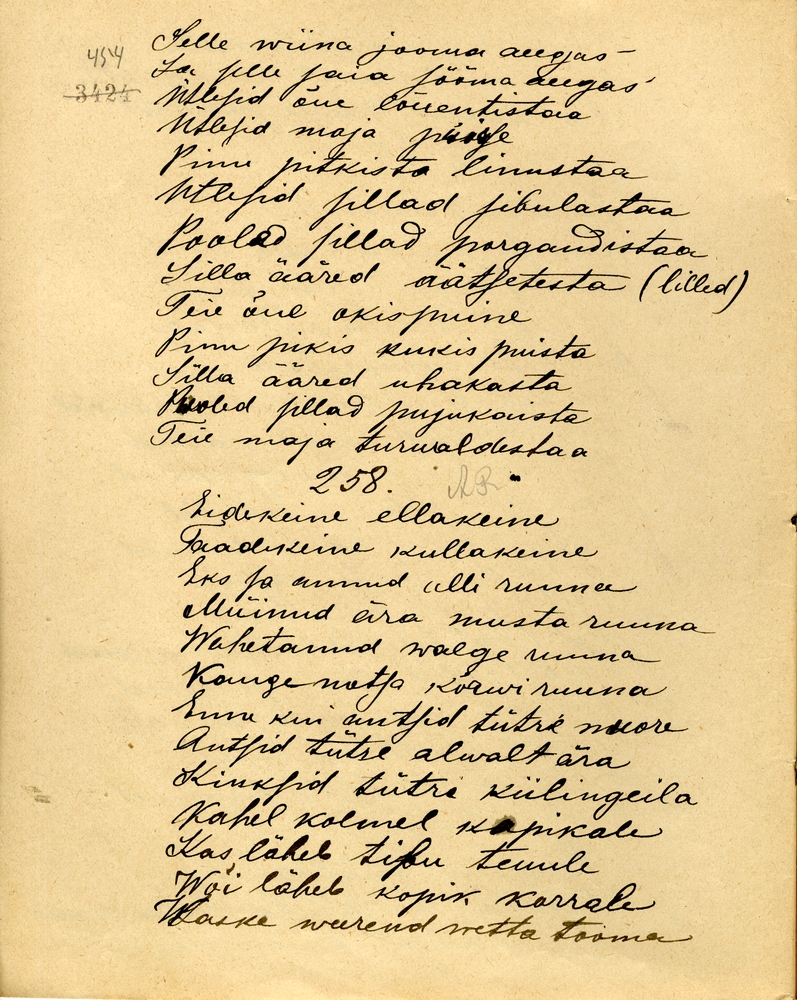 454
3424
Selle wiina jooma aegas
Ja selle saia sööma aegas
Ütlesid õue lõuentistaa
Ütlesid maja
Pinu pitkista linustaa
Ütlesid sillad sibulastaa
Poolad sillad porgandistaa
Silla ääred äätsetesta (lilled)
Teie õue okispuine
Pinu pikis kukispuista
Silla ääred uhakasta
Pooled sillad pujukaista
Teie maja turuwaldestaa
258. AR
Eidekeine ellakeine
Taadikeine kullakeine
Eks sa annud alli ruuna
Müinud ära musta ruuna
Wahetanud walge ruuna
Kauge notsa kõrwi ruuna
Ennu kui antsid tütre nuore
Antsid tütre alwalt ära
Kinksid tütre küilingeila
Kahel kolmel kapikale
Kas läheb tibu teuule
Wõi läheb kopik korrale
Waske weerend wetta tooma